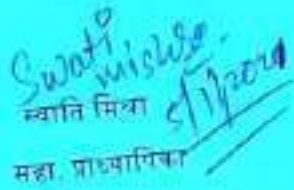 Swati
mishra
5/11/2021
स्वाति मिश्रा
सहा. प्राध्यापिका